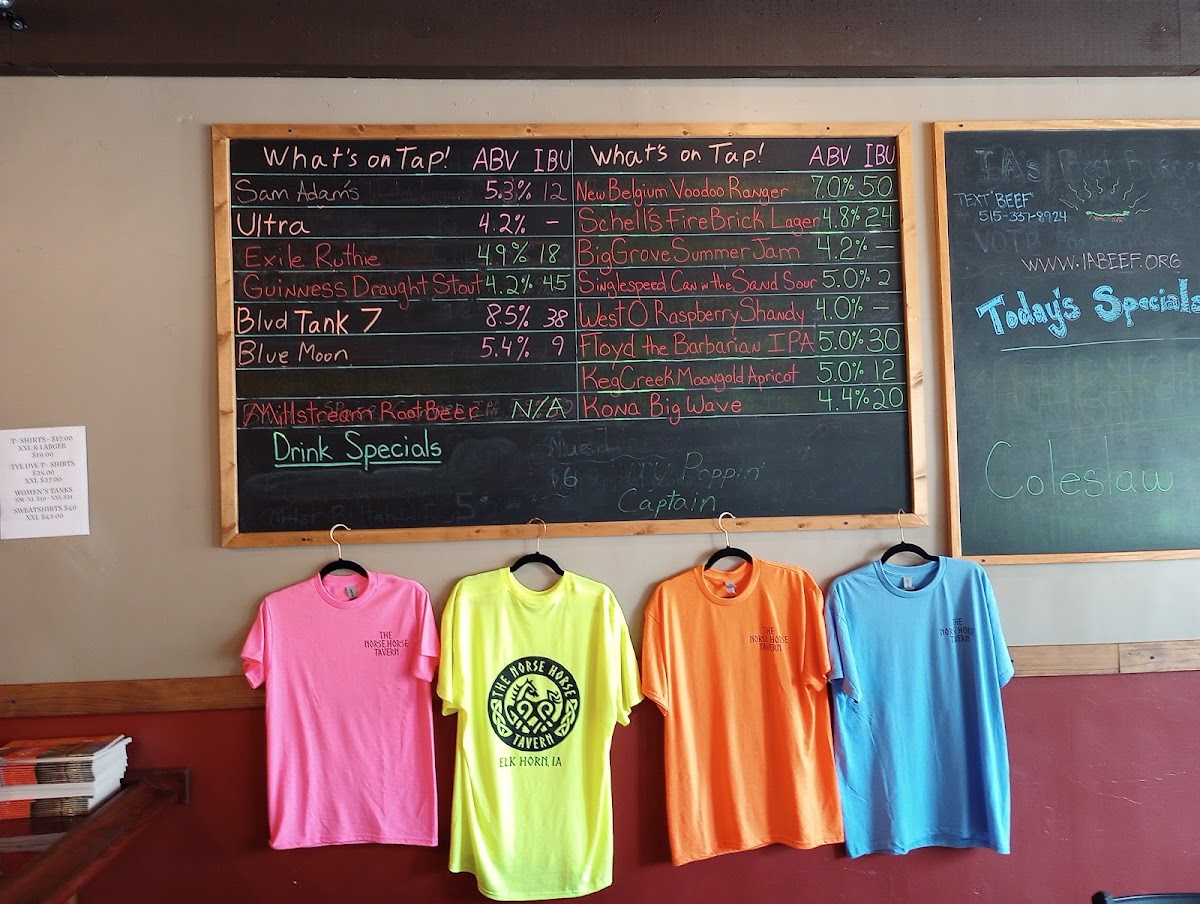 T- SHIRTS - $17.00
XXL & LARGER
$19.00
TYE DYE T- SHIRTS
$25.00
XXL $27.00
WOMEN'S TANKS
SM-XL $19 - XXL $21
SWEATSHIRTS $40
XXL $42.00
What's on Tap! ABV IBU
Sam Adam's 5.3% 12
Ultra 4.2% -
Exile Ruthie 4.9% 18
Guinness Draught Stout 4.2% 45
Blvd Tank 7 8.5% 38
Blue Moon 5.4% 9
Millstream Root Beer N/A
What's on Tap! ABV IBU
New Belgium Voodoo Ranger 7.0% 50
Schell's Fire Brick Lager 4.8% 24
Big Grove Summer Jam 4.2% -
Singlespeed Can in the Sand Sour 5.0% 2
West O Raspberry Shandy 4.0% -
Floyd the Barbarian IPA 5.0% 30
Keg Creek Moongold Apricot 5.0% 12
Kona Big Wave 4.4% 20
Drink Specials
$6
Poppin'
Captain
TEXT "BEEF"
515-337-8924
WWW.IABEEF.ORG
Today's Specials
Coleslaw
THE
NORSE HORSE
TAVERN
THE NORSE HORSE
TAVERN
ELK HORN, IA
THE
NORSE HORSE
TAVERN
THE
NORSE HORSE
TAVERN